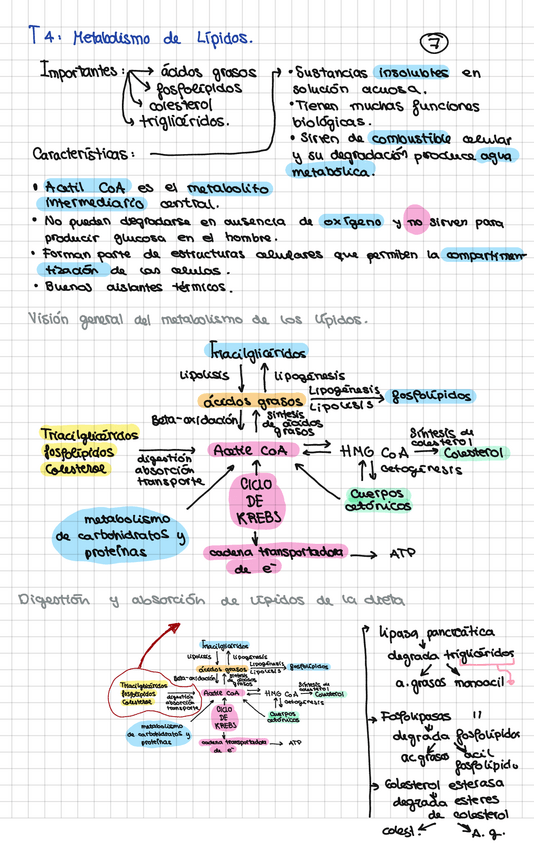 T4: Metabolismo de Lípidos.
7
Importantes: ácidos grasos
fosfolípidos
colesterol
triglicéridos.
Características:
• Sustancias insolubles en
solución acuosa.
• Tienen muchas funciones
biológicas.
• Sirven de combustible celular
y su degradación produce agua
metabólica.
• Acetil CoA es el metabolito
intermediario central.
• No pueden degradarse en ausencia de oxígeno y no sirven para
producir glucosa en el hombre.
• Forman parte de estructuras celulares que permiten la compartimen
tización de las celulas.
• Buenos aislantes térmicos.
Visión general del metabolismo de los lípidos.
Triacilglicéridos
lipolisis
lipogénesis
ácidos grasos
Lipogénesis
Lipolisis
fosfolípidos
Beta-oxidación
síntesis
de ácidos
grasos
Triacilglicéridos
fosfolípidos
Colesterol
digestión
absorción
transporte
Acetil CoA
HMG CoA
Síntesis de
colesterol
Colesterol
cetogénesis
Cuerpos
cetónicos
CICLO
DE
KREBS
metabolismo
de carbohidratos y
proteínas
cadena transportadora
de e⁻
ATP
Digestión y absorción de lípidos de la dieta
Triacilglicéridos
lipolisis
lipogénesis
ácidos grasos
Lipogénesis
Lipolisis
fosfolípidos
Beta-oxidación
síntesis
de ácidos
grasos
Triacilglicéridos
fosfolípidos
Colesterol
digestión
absorción
transporte
Acetil CoA
HMG CoA
Síntesis de
colesterol
Colesterol
cetogénesis
Cuerpos
cetónicos
CICLO
DE
KREBS
metabolismo
de carbohidratos y
proteínas
cadena transportadora
de e⁻
ATP
lipasa pancreática
degrada triglicéridos
a.grasos monoacil
Fosfolipasas "
degrada fosfolípidos
ac grasos acil
fosfolípido
Colesterol esterasa
degrada esteres
de colesterol
colest. A. g.